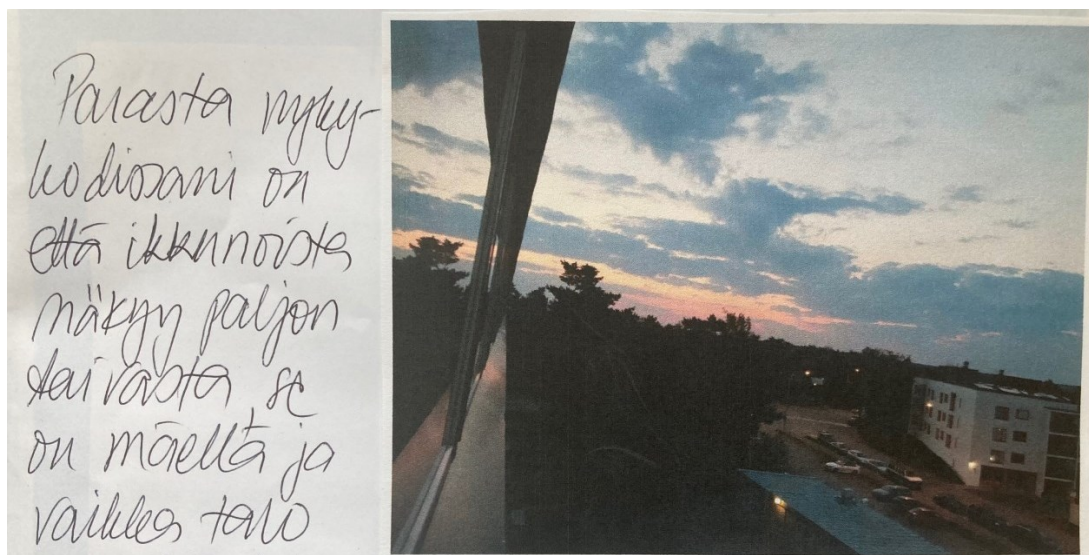 Parasta nyky-
kodissani on
että ikkunoista
näkyy paljon
taivasta se
on mäellä ja
vaikka talo